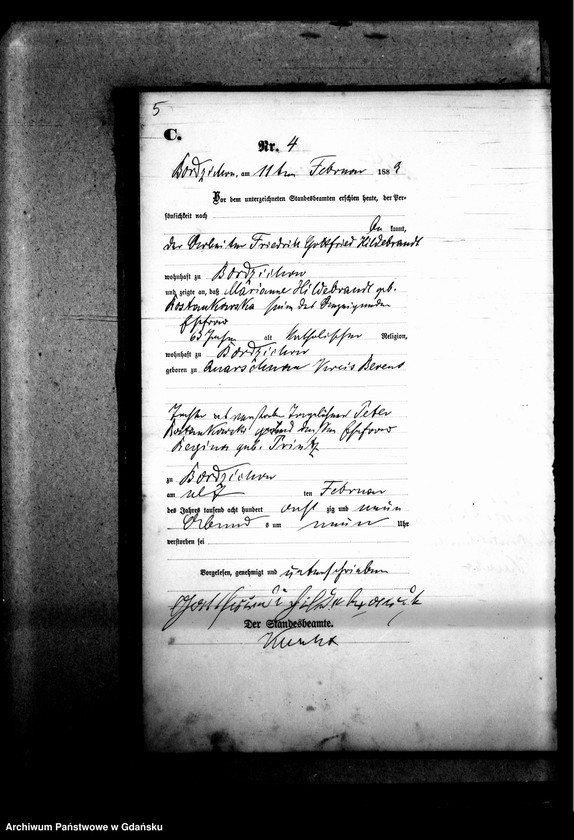 5
C.
Nr. 4
Bordzichow, am 11ten Februar 1889
Vor dem unterzeichneten Standesbeamten erschien heute, der Per-
sönlichkeit nach
kannt,
der Arbeiter Friedrich Gottfried Hildebrandt
wohnhaft zu Bordzichow
und zeigte an, daß Marianne Hildebrandt geb.
Rostankowska
Ehefrau
63 Jahre alt katholischer Religion,
wohnhaft zu Bordzichow
geboren zu Kreis Berent
Tochter des verstorbenen Peter
Rostankowski und dessen Ehefrau
Regina geb. Printz
zu Bordzichow
am elf ten Februar
des Jahres tausend acht hundert acht zig und neun
Abend s um neun Uhr
verstorben sei
Vorgelesen, genehmigt und unterschrieben
Gottfried Hildebrandt
Der Standesbeamte.
Archiwum Państwowe w Gdańsku